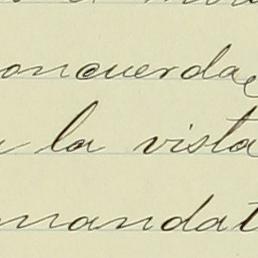 concuerda
la vista
mandat